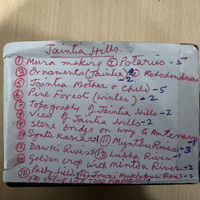 Jaintia Hills.
① Mura making ② Polaries - 5
③ Ornaments (Jaintia) ④ Rododendras
-2
⑤ Jaintia Mother & Child - 5
⑥ Pine Forest (winter) - 2
⑦ Topography of Jaintia Hills - 2
⑧ View of Jaintia Hills - 2
⑨ Stone bridge on way
⑩ Syntu Ksiar ⑪ Myntdu River - 3
⑫ Dawki River ⑬ Lubha River - 1
⑭ Golden crop with Mintdu River - 2
⑮ Paddy fields